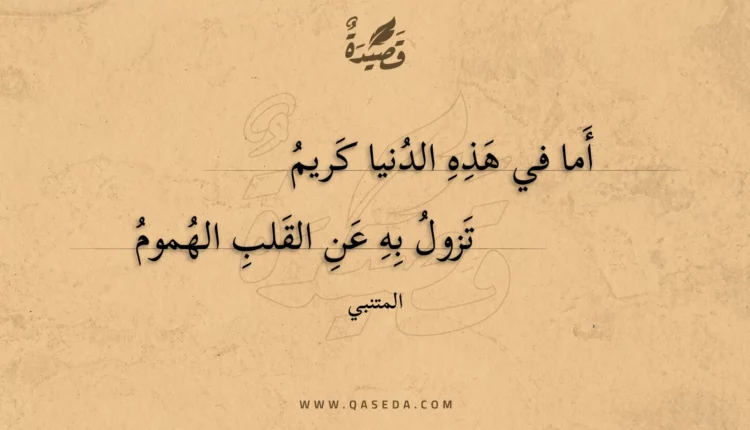 قَصِيدَةٌ
أَما في هَذِهِ الدُنيا كَريمُ
تَزولُ بِهِ عَنِ القَلبِ الهُمومُ
المتنبي
WWW.QASEDA.COM